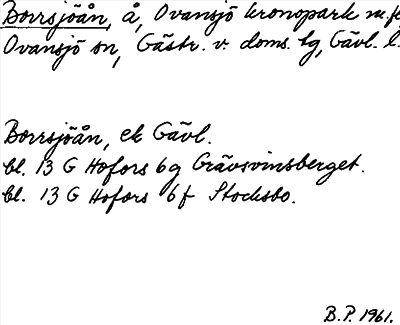 Borrsjöån, å, Ovansjö kronopark m.fl
Ovansjö sn, Gästr. v. doms. tg, Gävl. l.
Borrsjöån, ek Gävl.
bl. 13 G Hofors 6g Grävsvinsberget.
bl. 13 G Hofors 6f Stocksbo.
B.P. 1961.